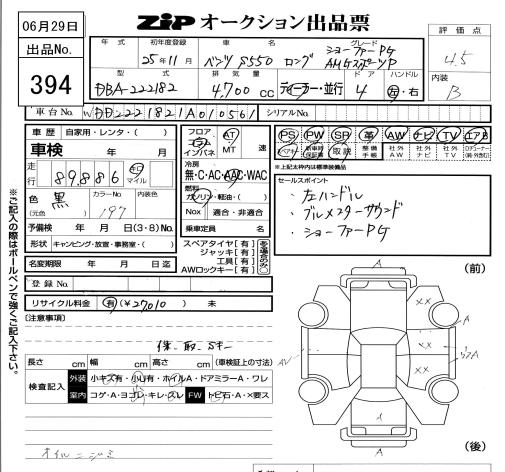 06月29日
出品No.
394
ZIP オークション出品票
評価点
4.5
内装
B
年式 初年度登録 車名 グレード
25年11月 ベンツ S550 ロング ショーファーPG AMGスポーツP
型式 排気量 ドア ハンドル
DBA-222182 4,700 cc ディーラー・並行 4 左・右
車台No. WDD2221821A010561 シリアルNo.
車歴 自家用・レンタ・( )
車検 年 月
走行 89,886 キロ マイル
色 黒 カラーNo 197 内装色
(元色)
予備検 年 月 日(3・8)No.
形状 キャンピング・放宣・事務室・( )
名変期限 年 月 日迄
登録No.
リサイクル料金 有(¥27,010) 未
フロア コラム インパネ AT MT 速
冷房
無・C・AC・AAC・WAC
燃料
ガソリン・軽油・( )
Nox 適合・非適合
乗車定員 名
スペアタイヤ[有]
ジャッキ[有]
工具[有]
AWロックキー[有]
ある場合のみ○
PS PW SR 革 AW ナビ TV エアB
スペアキー 新車時保証書 取説 整備手帳 社外AW 社外ナビ 社外TV
※上記太枠内は標準装備品
セールスポイント
・左ハンドル
・ブルメスターサウンド
・ショーファーPG
[注意事項]
保・取・Sキー
長さ cm 幅 cm 高さ cm (車検証上の寸法)
検査記入 外装 小キズ有・小凹有・ホイルA・ドアミラーA・ワレ
室内 コゲ・A・ヨゴレ・キレ・スレ FW トビ石・A・×要ス
オイルニジミ
※ご記入の際はボールペンで強くご記入下さい。
(前)
A
××
A
AV
××
A
××
A
A
(後)